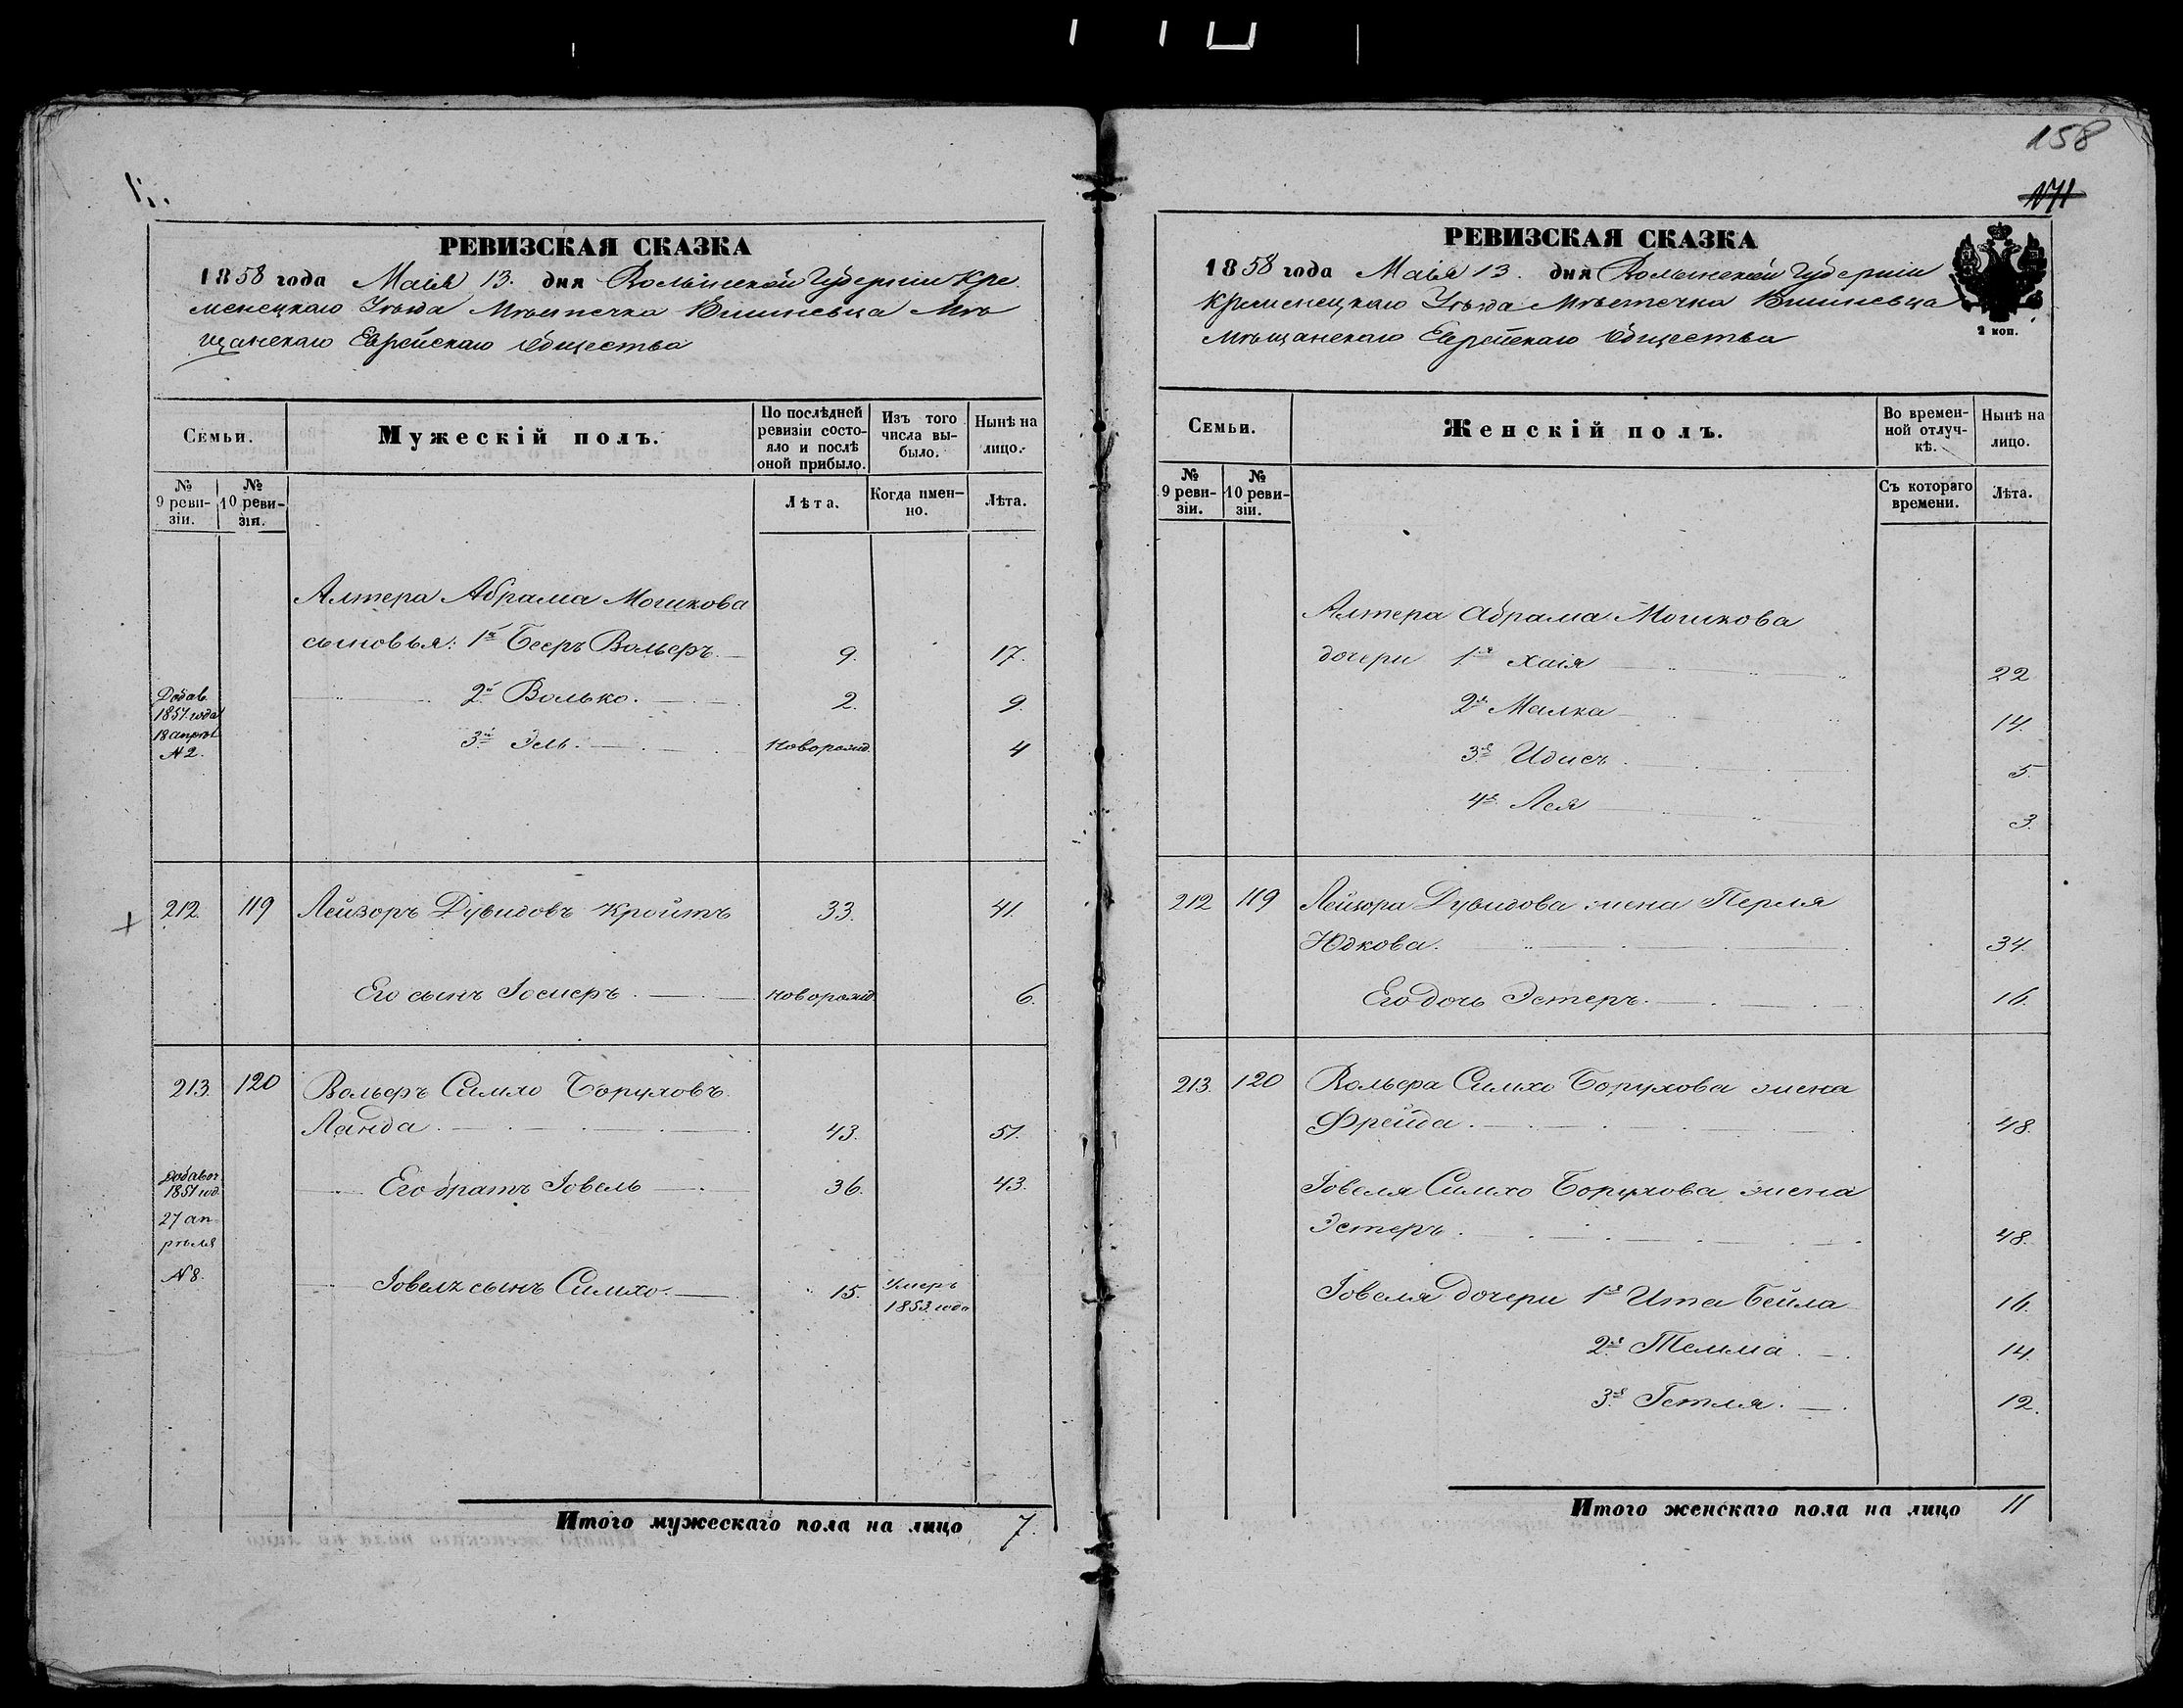 158
171
РЕВИЗСКАЯ СКАЗКА
1858 года Маія 13. дня Волынской Губерніи Кре
менецкаго Уѣзда Мѣстечка Вишневца Мѣ
щанскаго Еврейскаго Общества
Семьи.
Мужескій полъ.
По послѣдней ревизіи состояло и послѣ оной прибыло.
Изъ того числа выбыло.
Нынѣ на лицо.
№ 9 ревизіи.
№ 10 ревизіи.
Лѣта.
Когда именно.
Лѣта.
Алтера Абрама Мошкова
сыновья: 1й Бееръ Вольфъ. 9. 17.
2й Волько. 2. 9.
Добав.
1851. года
18 апрѣл
N 2.
3й Эль. новорожд. 4
212. 119 Лейзоръ Дувидовъ Кройтъ 33. 41.
Его сынъ Іосифъ. новорожд. 6.
213. 120 Вольфъ Симхо Боруховъ
Ланда. 43. 51.
Добавоч.
1851 год.
27 ап
рѣля
N 8.
Его братъ Іовель 36. 43.
Іовеля сынъ Симхо. 15. Умеръ
1853. года
Итого мужескаго пола на лицо 7.
РЕВИЗСКАЯ СКАЗКА
1858 года Маія 13. дня Волынской Губерніи
Кременецкаго Уѣзда Мѣстечка Вишневца
Мѣщанскаго Еврейскаго Общества
2 коп.
Семьи.
Женскій полъ.
Во временной отлучкѣ.
Нынѣ на лицо.
№ 9 ревизіи.
№ 10 ревизіи.
Съ котораго времени.
Лѣта.
Алтера Абрама Мошкова
дочери 1я Хаія 22
2я Малка 14.
3я Идись. 5.
4я Лея 3.
212 119 Лейзора Дувидова жена Перля
Юдкова. 34.
Его дочь Эстеръ. 16.
213. 120 Вольфа Симхо Борухова жена
Фрейда. 48.
Іовеля Симхо Борухова жена
Эстеръ. 48.
Іовеля дочери 1я Ита Бейла 16.
2я Темма. 14.
3я Гетля. 12.
Итого женскаго пола на лицо 11